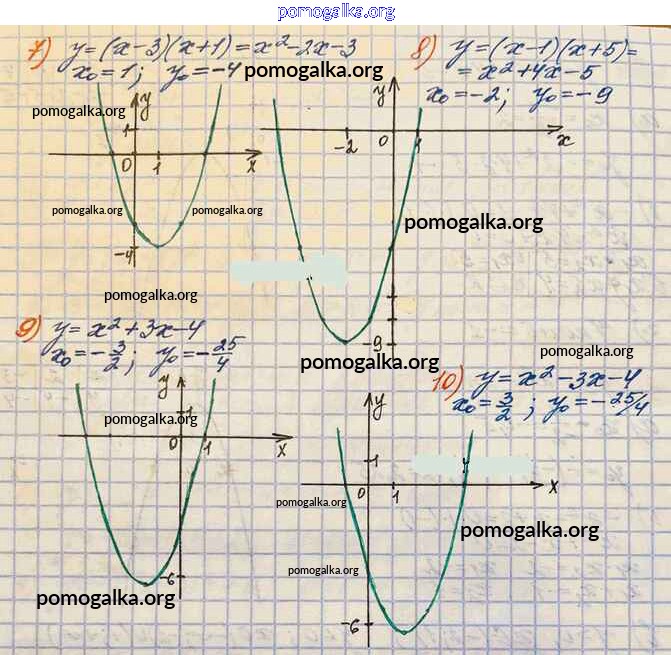 pomogalka.org
7) y=(x-3)(x+1)=x²-2x-3
x₀=1; y₀=-4
pomogalka.org
8) y=(x-1)(x+5)=
=x²+4x-5
x₀=-2; y₀=-9
pomogalka.org
y
1
0
1
x
-4
pomogalka.org
pomogalka.org
y
-2
0
1
x
-9
pomogalka.org
pomogalka.org
9) y=x²+3x-4
x₀=-3/2; y₀=-25/4
pomogalka.org
pomogalka.org
10) y=x²-3x-4
x₀=3/2; y₀=-25/4
y
1
0
1
x
-6
pomogalka.org
pomogalka.org
y
1
0
1
x
-6
pomogalka.org
pomogalka.org
pomogalka.org